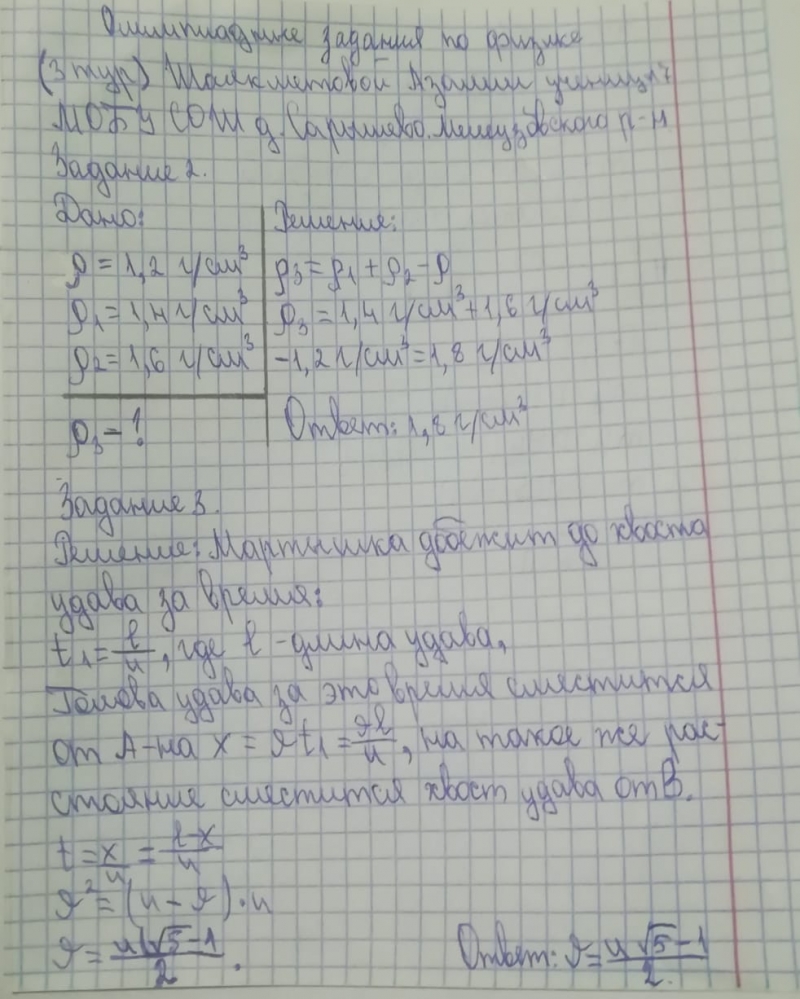 Олимпиадные задания по физике
(3 тур) Шаяхметовой Азалии ученицы 7
МОБУ СОШ д. Сарышево Мелеузовского р-н
Задание 2.
Дано:
Решение:
ρ = 1,2 г/см³
ρ3 = ρ1 + ρ2 - ρ
ρ1 = 1,4 г/см³
ρ3 = 1,4 г/см³ + 1,6 г/см³
ρ2 = 1,6 г/см³
- 1,2 г/см³ = 1,8 г/см³
ρ3 - ?
Ответ: 1,8 г/см³
Задание 3.
Решение: Мартышка добежит до хвоста
удава за время:
t1 = l/u, где l - длина удава,
Голова удава за это время сместится
от А - на x = ϑt1 = ϑl/u, на такое же рас-
стояние сместится хвост удава от В.
t = x/u = l-x/u
ϑ² = (u - ϑ) · u
ϑ = u(√5 - 1/2.
Ответ: ϑ = u√5 - 1/2.